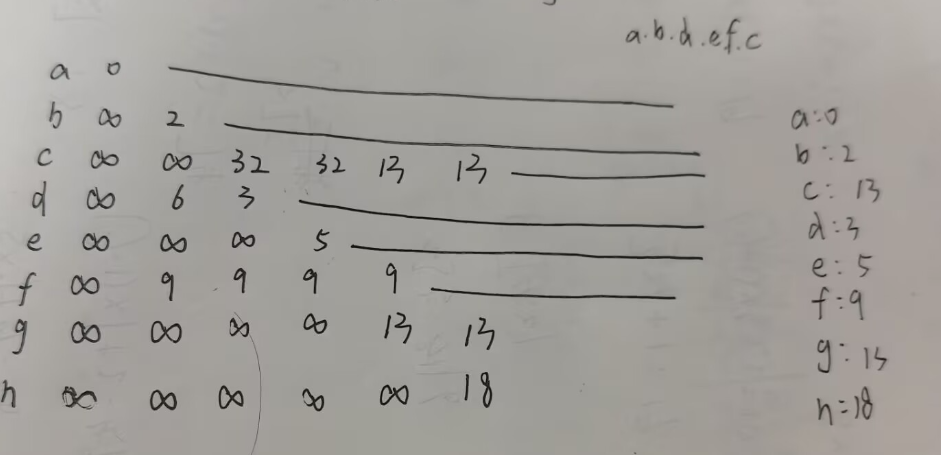 a.b.d.e.f.c
a 0
b ∞ 2
c ∞ ∞ 32 32 13 13
d ∞ 6 3
e ∞ ∞ ∞ 5
f ∞ 9 9 9 9
g ∞ ∞ ∞ ∞ 13 13
h ∞ ∞ ∞ ∞ ∞ 18
a:0
b:2
c: 13
d:3
e:5
f:9
g:13
h=18